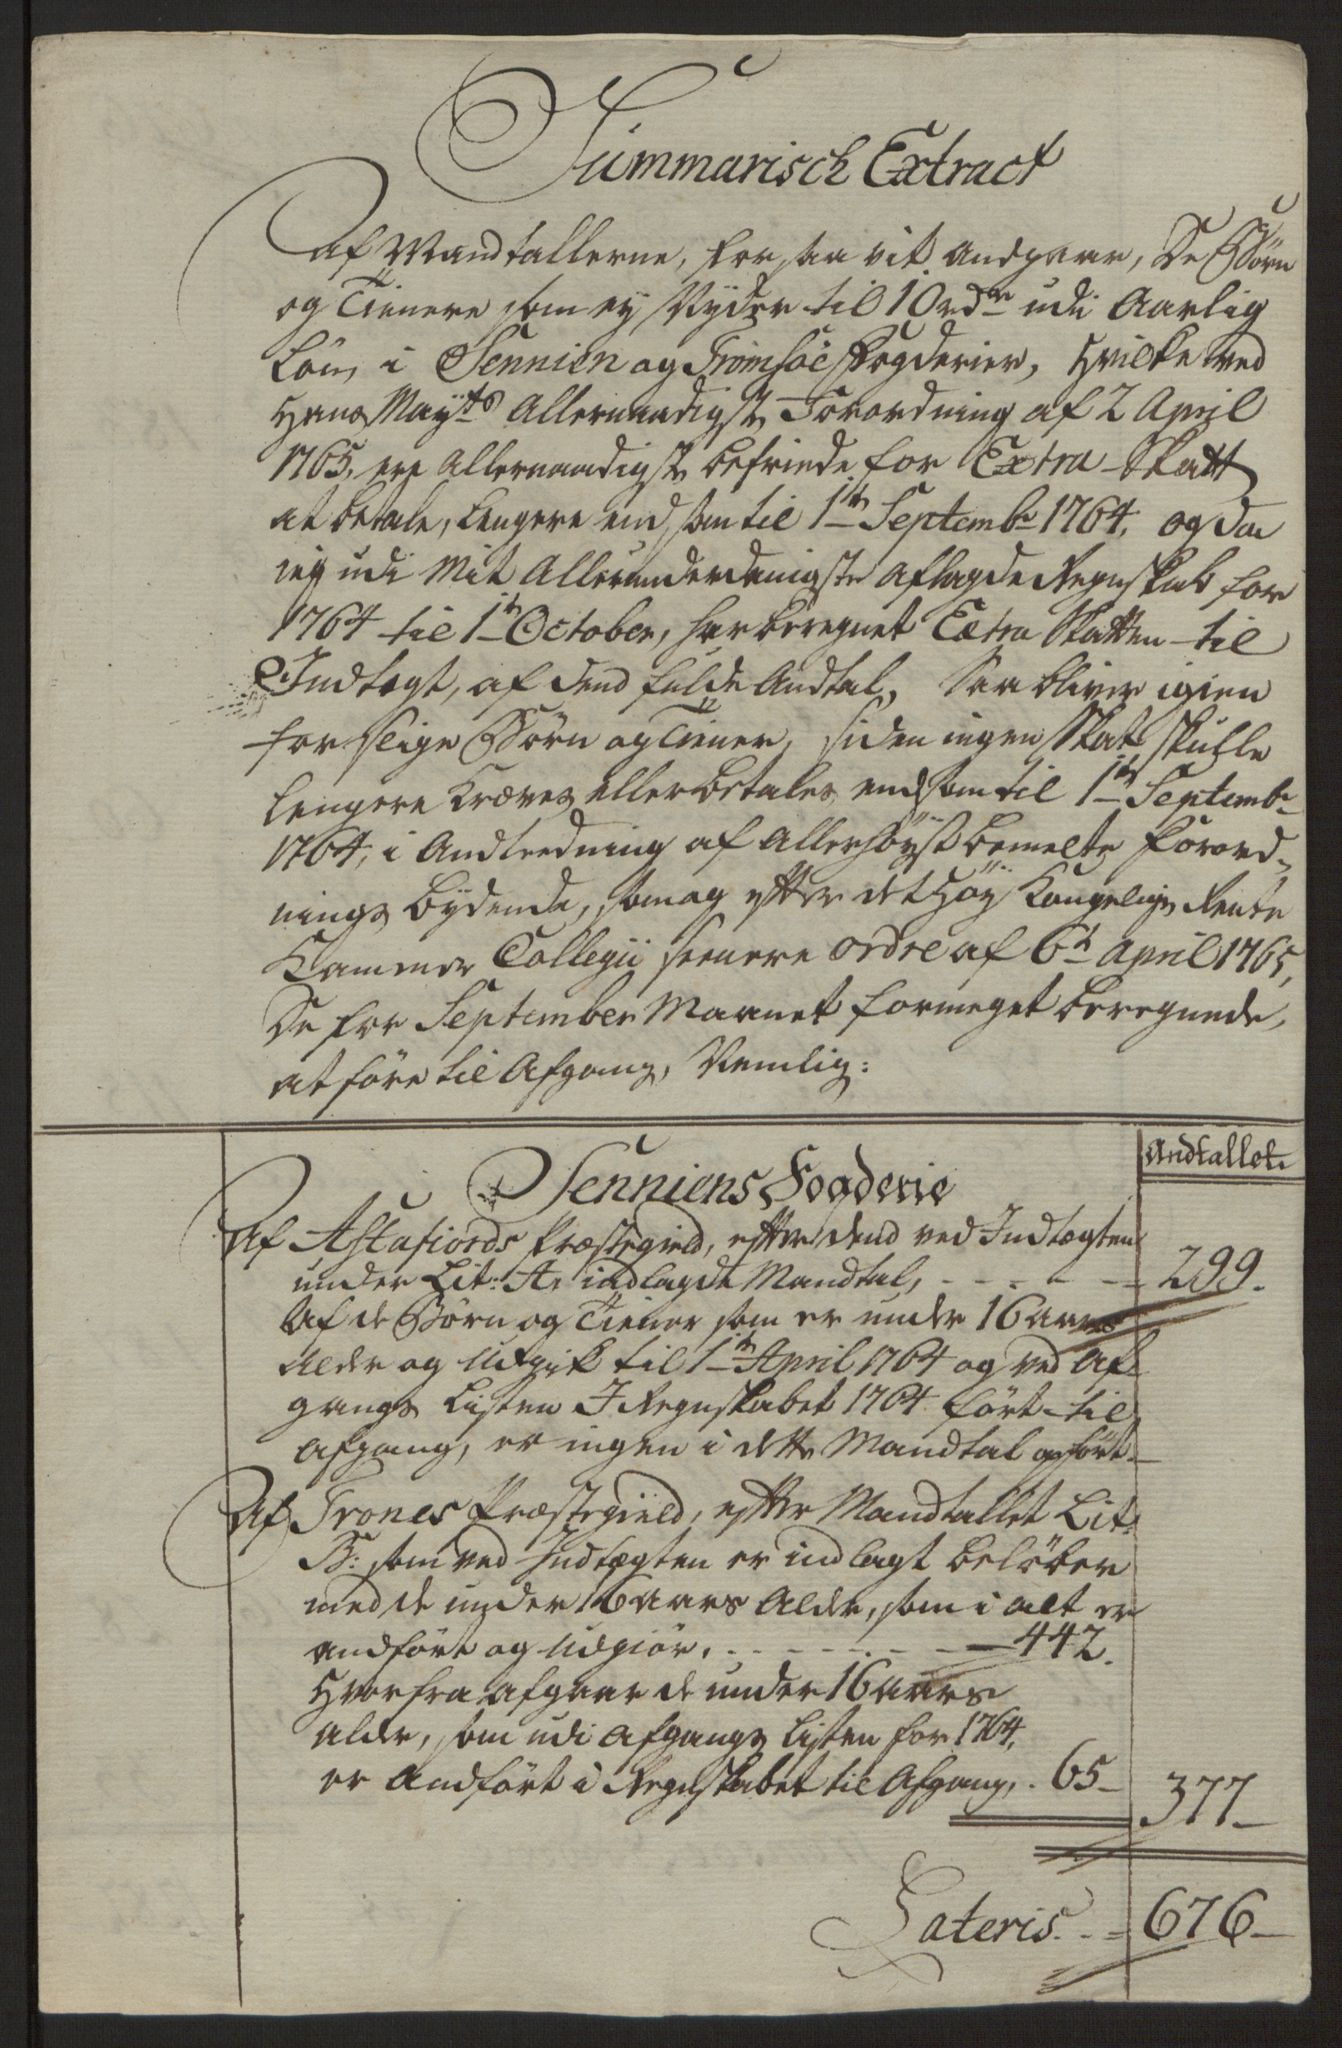 Summarisch Extract
af Mandtallerne, for saa vit andgaar, De Børn
og Tienere som ey Nyder til 10 rdr udi Aarlig
Løn, i Sennien og Tromsøe Fogderier, hvilke ved
Hans Mayts Allernaadigste Forordning af 2 April
1765, ere Allernaadigst befriede for Extra-Skatt
at betale, lengere end som til 1te Septembr 1764, og da
ieg udi Mit Allerunderdanigste Aflagde Regnskab for
1764 til 1te October, har beregnet Extra Skatten til
Indtægt, af dend fulde Andtal, Saa bliver igien
for slige Børn og Tiener, siden ingen Skat skulle
lengere Kræves eller betales end som til 1te Septembr
1764, i Andledning af Allerhøyst bemelte Forord-
nings bydende, som og efter det høy Kongelige Rente
Kammer Collegii seenere ordre af 6te April 1765,
De for September Maanet formeget beregnede,
at føre til Afgang, Nemlig:
Andtallet
Senniens Fogderie
Af Astafiords Præstegield, efter dend ved Indtægten
under Lit: A, indlagde Mandtal, - - - - - 299.
Af de Børn og Tiener som er under 16 aars
Alder og udgik til 1te April 1764 og ved Af-
gangs Listen I Regnskabet 1764 ført til
Afgang, er ingen i dette Mandtal opført.
Af Trones Præstegield, efter Mandtallet Lit:
B: som ved Indtægten er indlagt beløber
med de under 16 aars Alder, som i alt er
andført og Udgiør, - - - - - 442.
Hvorfra afgaar de under 16 aars
alder, som udi Afgangs Listen for 1764,
er Andført i Regnskabet til Afgang, . 65 - 377 -
Lateris. - - = 676 -